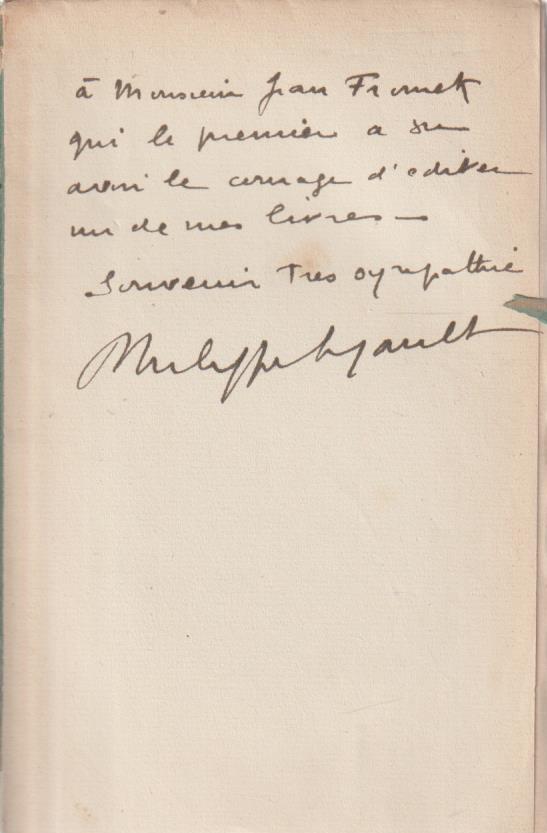 à Monsieur Jean
qui le premier a su
avoir le courage d'editer
un de mes livres —
Souvenir Tres sympathie
Philippe